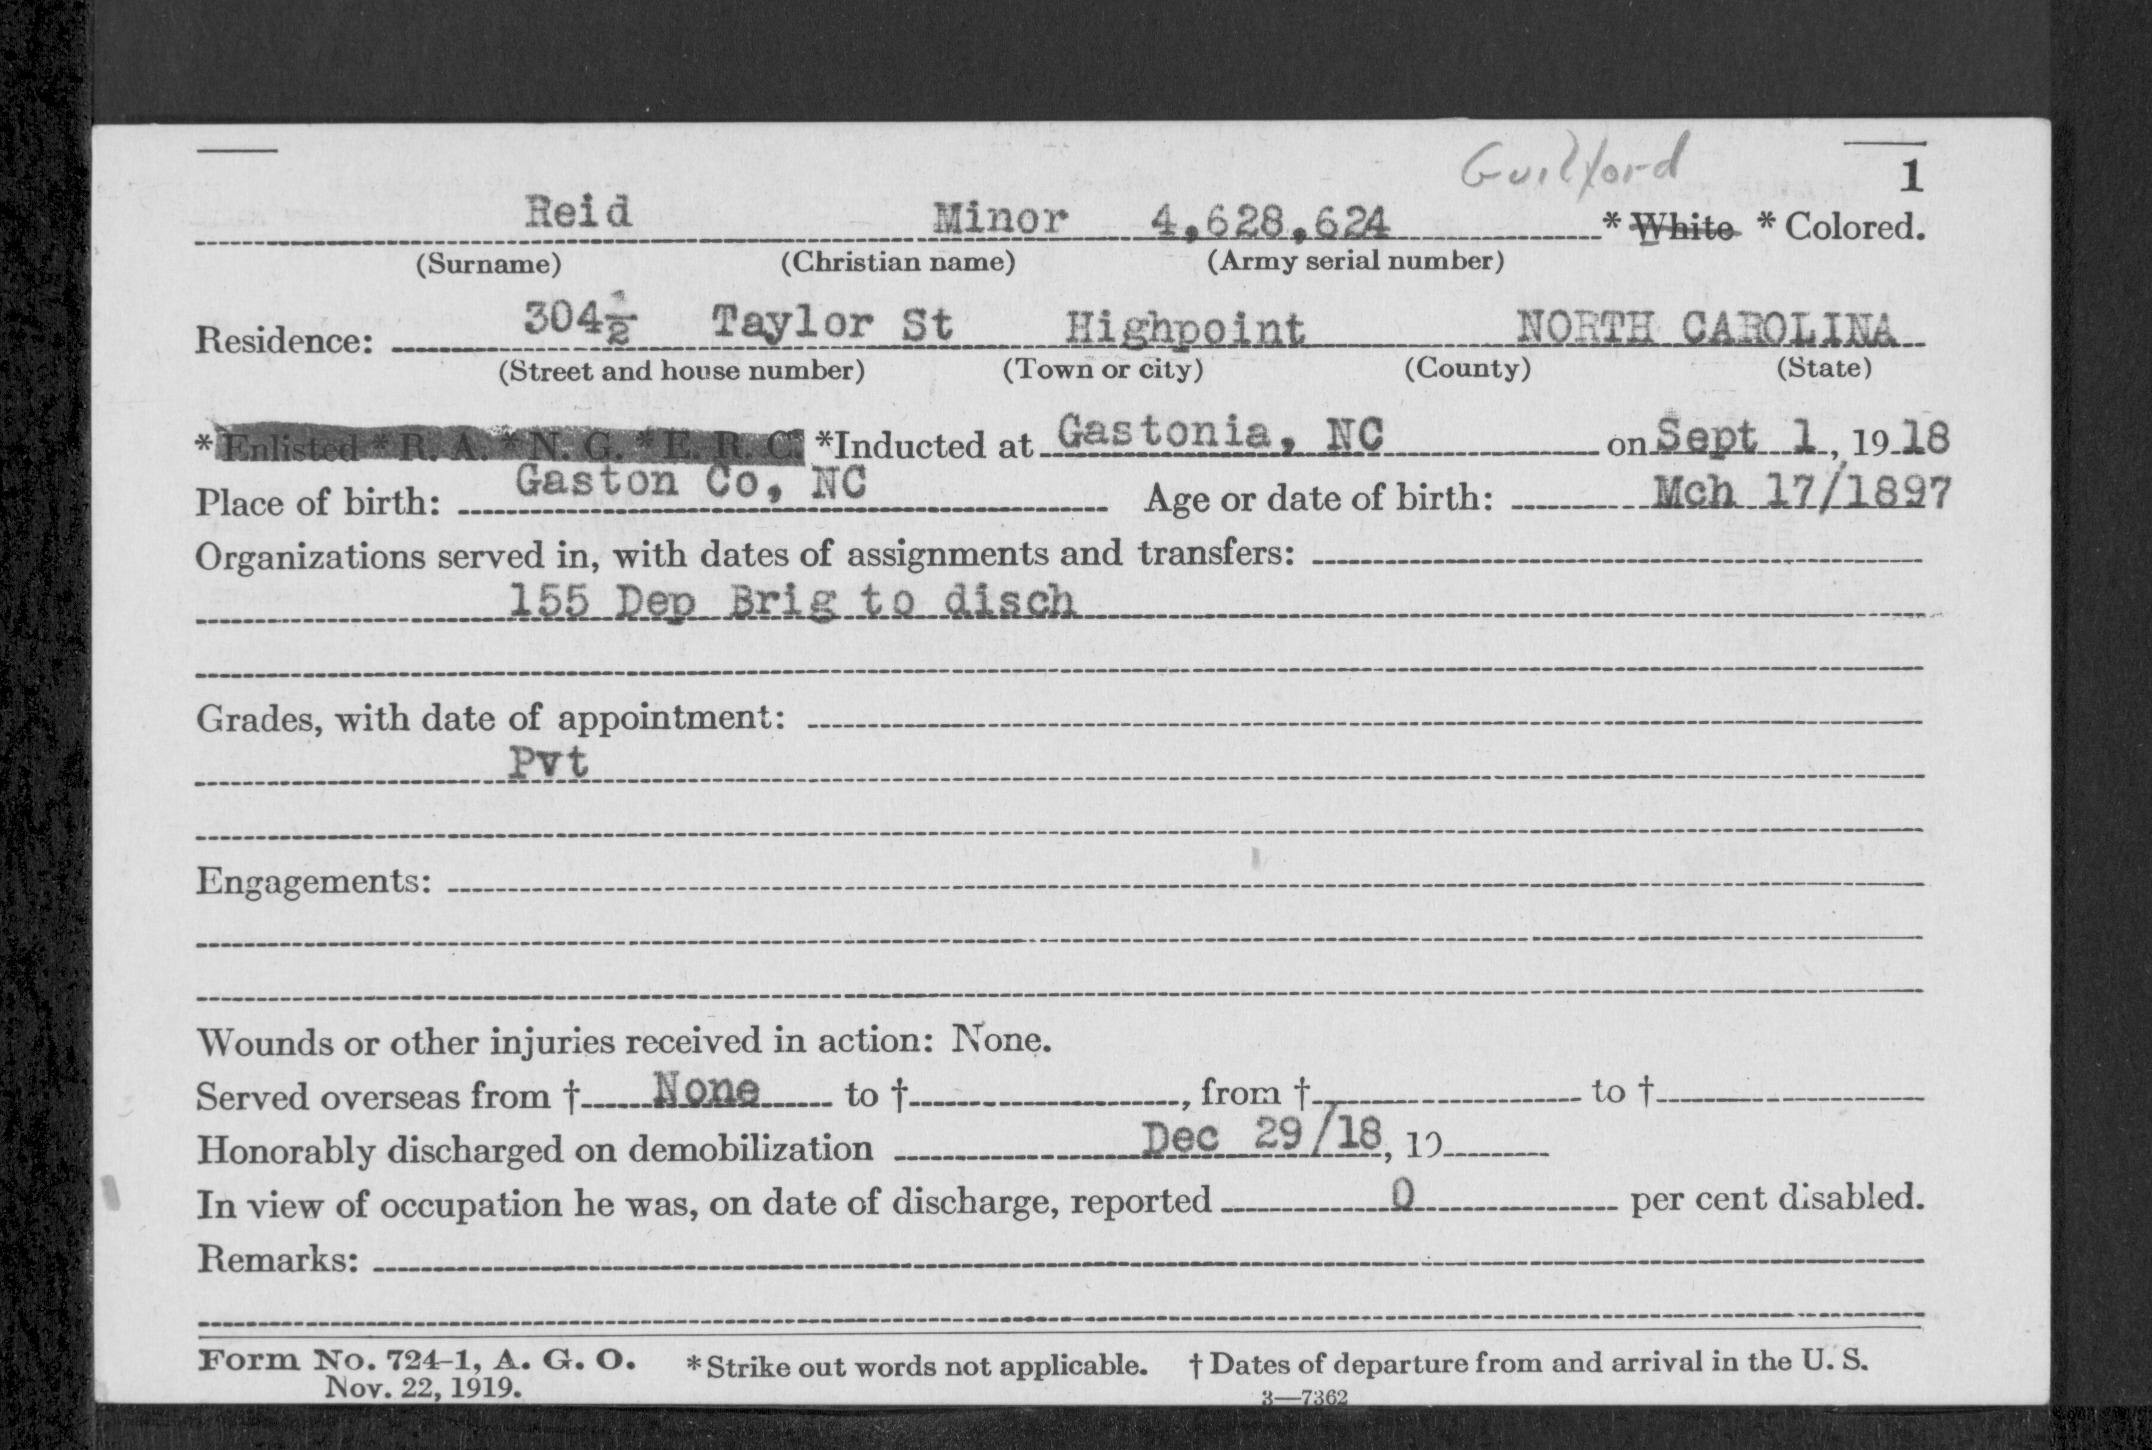 Guilford
1
Reid Minor 4,628,624 * White * Colored.
(Surname) (Christian name) (Army serial number)
Residence: 304½ Taylor St Highpoint NORTH CAROLINA
(Street and house number) (Town or city) (County) (State)
* Enlisted * R. A. * N. G. * E. R. C. *Inducted at Gastonia, NC on Sept 1, 1918
Place of birth: Gaston Co, NC Age or date of birth: Mch 17/1897
Organizations served in, with dates of assignments and transfers:
155 Dep Brig to disch
Grades, with date of appointment:
Pvt
Engagements:
Wounds or other injuries received in action: None.
Served overseas from † None to † , from † to †
Honorably discharged on demobilization Dec 29/18, 19
In view of occupation he was, on date of discharge, reported 0 per cent disabled.
Remarks:
Form No. 724-1, A. G. O. * Strike out words not applicable. † Dates of departure from and arrival in the U. S.
Nov. 22, 1919. 3—7362